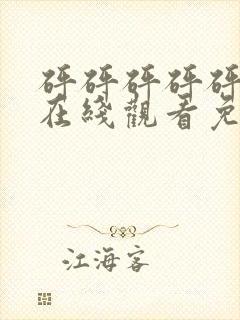 砰砰砰砰砰
在綫觀看免
江海客